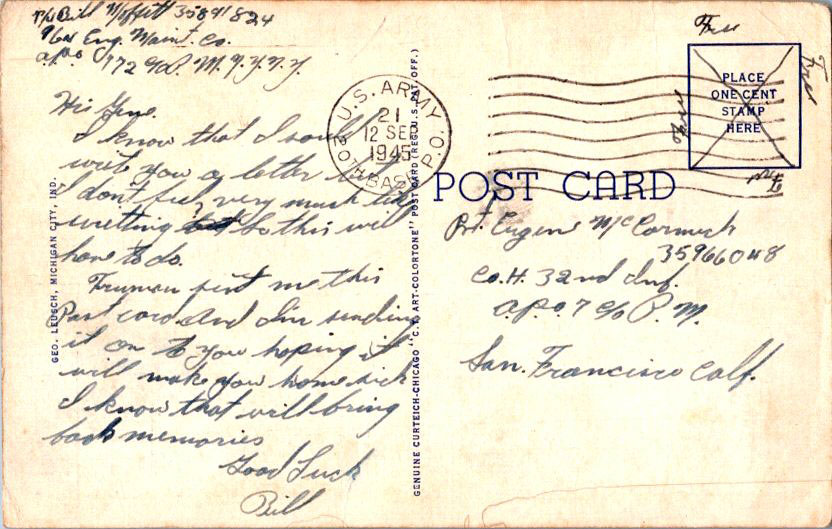 Bill Moffitt 35841824
964 Eng. Maint. Co.
A.P.O 172 c/o P.M. N.Y. N.Y.
Hi Gene.
I know that I said I would
write you a letter but
I don't feel very much like
writting but So this will
have to do.
Truman sent me this
Post card And I'm sending
it on to you hoping it
will make you home sick
I know that will bring
back memories
Good Luck
Bill
GEO. LEUSCH, MICHIGAN CITY, IND.
GENUINE CURTEICH-CHICAGO "C.T. ART-COLORTONE" POST CARD (REG. U.S. PAT. OFF.)
U.S. ARMY P.O.
21
12 SEP
1945
20TH BASE
POST CARD
Free
Free
Free
Free
PLACE
ONE CENT
STAMP
HERE
Pvt. Eugene McCormick
35966048
Co. H. 32nd Inf.
A.P.O 7 c/o P.M.
San. Francisco Calf.